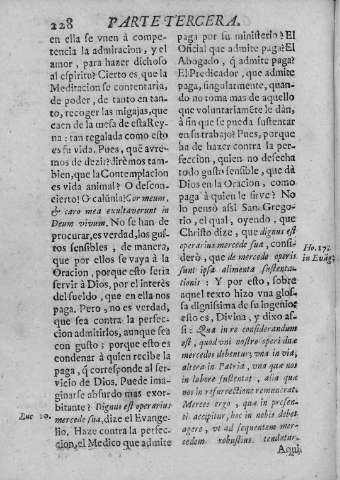 228 PARTE TERCERA.
en ella se vnen à compe-
tencia la admiracion, y el
amor, para hazer dichoso
al espiritu? Cierto es que la
Meditacion se contentaria,
de poder, de tanto en tan-
to, recoger las migajas, que
caen de la mesa de esta Rey-
na: tan regalada como esto
es su vida. Pues, què avre-
mos de dezir? dirèmos tam-
bien, que la Contemplacion
es vida animal? O descon-
cierto! O calũnia! Cor meum,
& caro mea exultaverunt in
Deum vivum. No se han de
procurar, es verdad, los gus-
tos sensibles, de manera,
que por ellos se vaya à la
Oracion, porque esto seria
servir à Dios, por el interès
del sueldo, que en ella nos
paga. Pero, no es verdad,
que sea contra la perfec-
cion admitirlos, aunque sea
con gusto; porque esto es
condenar à quien recibe la
paga, q̃ corresponde al ser-
vicio de Dios. Puede ima-
ginarse absurdo mas exor-
bitante? Dignus est operarius
Luc 10. mercede sua, dize el Evange-
lio. Haze contra la perfec-
cion, el Medico que admite
paga por su ministerio? El
Oficial que admite paga? El
Abogado, q̃ admite paga?
El Predicador, que admite
paga, singularmente, quan-
do no toma mas de aquello
que voluntariamẽte le dàn,
à fin que se pueda sustentar
en su trabajo? Pues, porque
ha de hazer contra la per-
feccion, quien no desecha
todo gusto sensible, que dà
Dios en la Oracion, como
paga à quien le sirve? No
lo pensò assi San Grego-
rio, el qual, oyendo, que
Christo dize, que dignus est
operarius mercede sua, consi-
derò, que de mercede operis
sunt ipsa alimenta sustenta-
tionis: Y por esto, sobre
aquel texto hizo vna glos-
sa dignissima de su ingenio:
esto es, Divina, y dixo as-
si: Qua in re considerandum
est, quod vni nostro operi duæ
mercedes debentur, vna in via,
altera in Patria, vna quæ nos
in labore sustentat, alia quæ
nos in resurrectione remunerat.
Merces ergo, quæ in præsen-
ti accipitur, hoc in nobis debet
agere, vt ad sequentem mer-
cedem robustius tendatur.
Aqui
Ho. 17.
in Evãg.